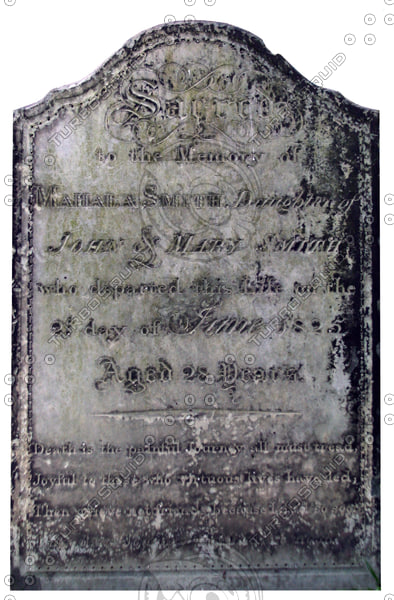 Sacred
to the Memory of
MAHALA SMITH, Daughter of
JOHN & MARY SMITH
who departed this life on the
28 day of June 1825
Aged 28 Years
Death is the painful Journey all must tread,
Joyful to those who virtuous lives have led,
Then grieve not friends because I went so soon